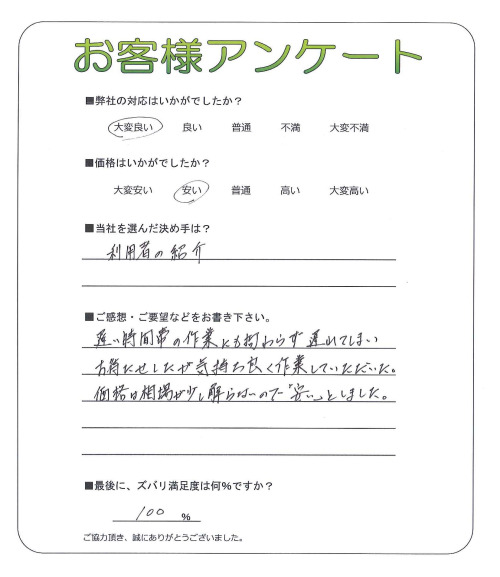 お客様アンケート
■弊社の対応はいかがでしたか？
大変良い 良い 普通 不満 大変不満
■価格はいかがでしたか？
大変安い 安い 普通 高い 大変高い
■当社を選んだ決め手は？
利用者の紹介
■ご感想・ご要望などをお書き下さい。
遅い時間帯の作業にも拘わらず遅れてしまい
お待たせしたが気持ち良く作業していただいた。
価格は相場が少し解らないので「安い」としました。
■最後に、ズバリ満足度は何％ですか？
100 ％
ご協力頂き、誠にありがとうございました。